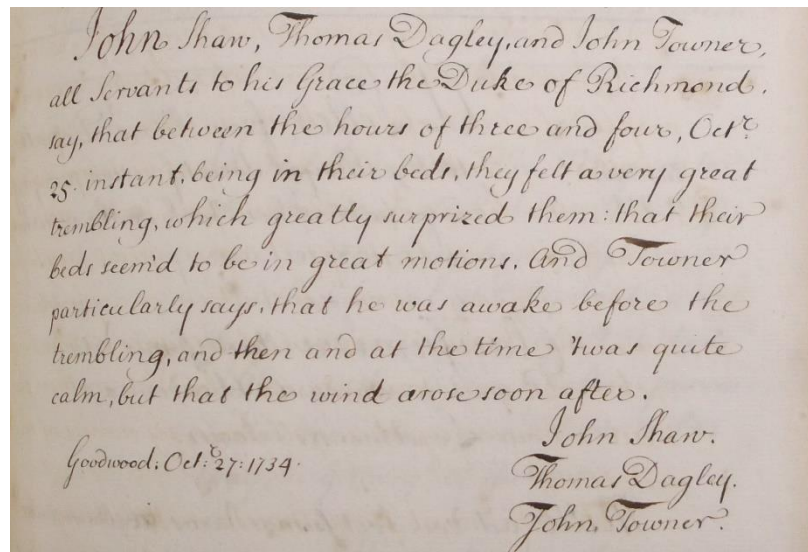 John Shaw, Thomas Dagley, and John Towner,
all Servants to his Grace the Duke of Richmond,
say, that between the hours of three and four, Octr.
25. instant, being in their beds, they felt a very great
trembling, which greatly surprized them: that their
beds seem'd to be in great motions. And Towner
particularly says, that he was awake before the
trembling, and then and at the time 'twas quite
calm, but that the wind arose soon after.
John Shaw.
Goodwood. Oct:r 27: 1734.
Thomas Dagley.
John Towner.